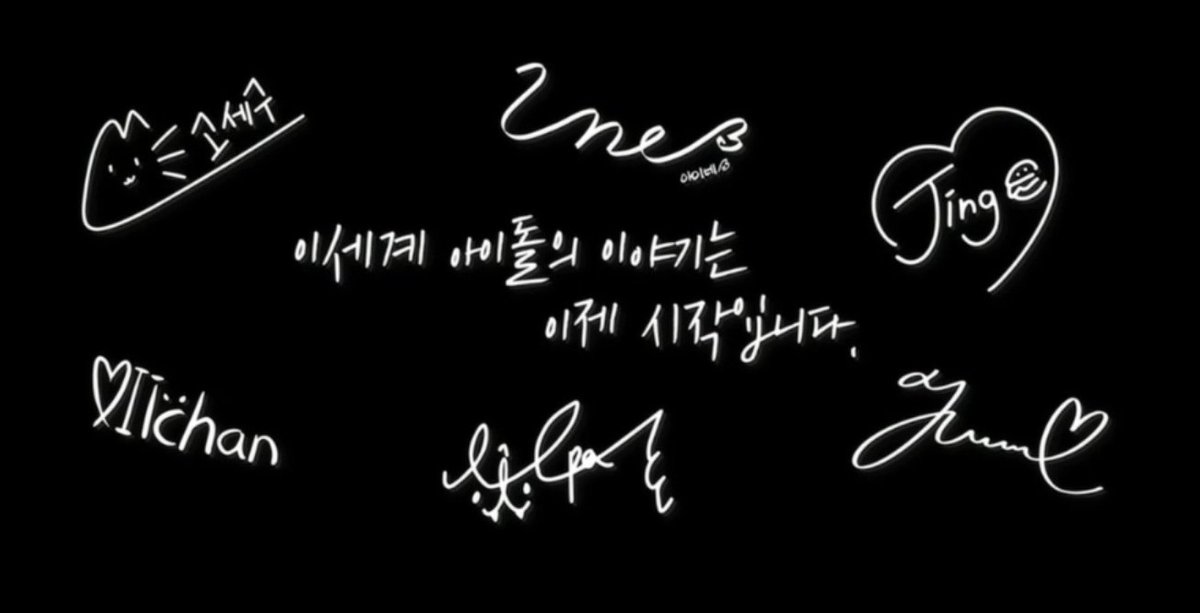 고세구
Ine
아이네
Jing
이세계 아이돌의 이야기는
이제 시작입니다.
Ilchan